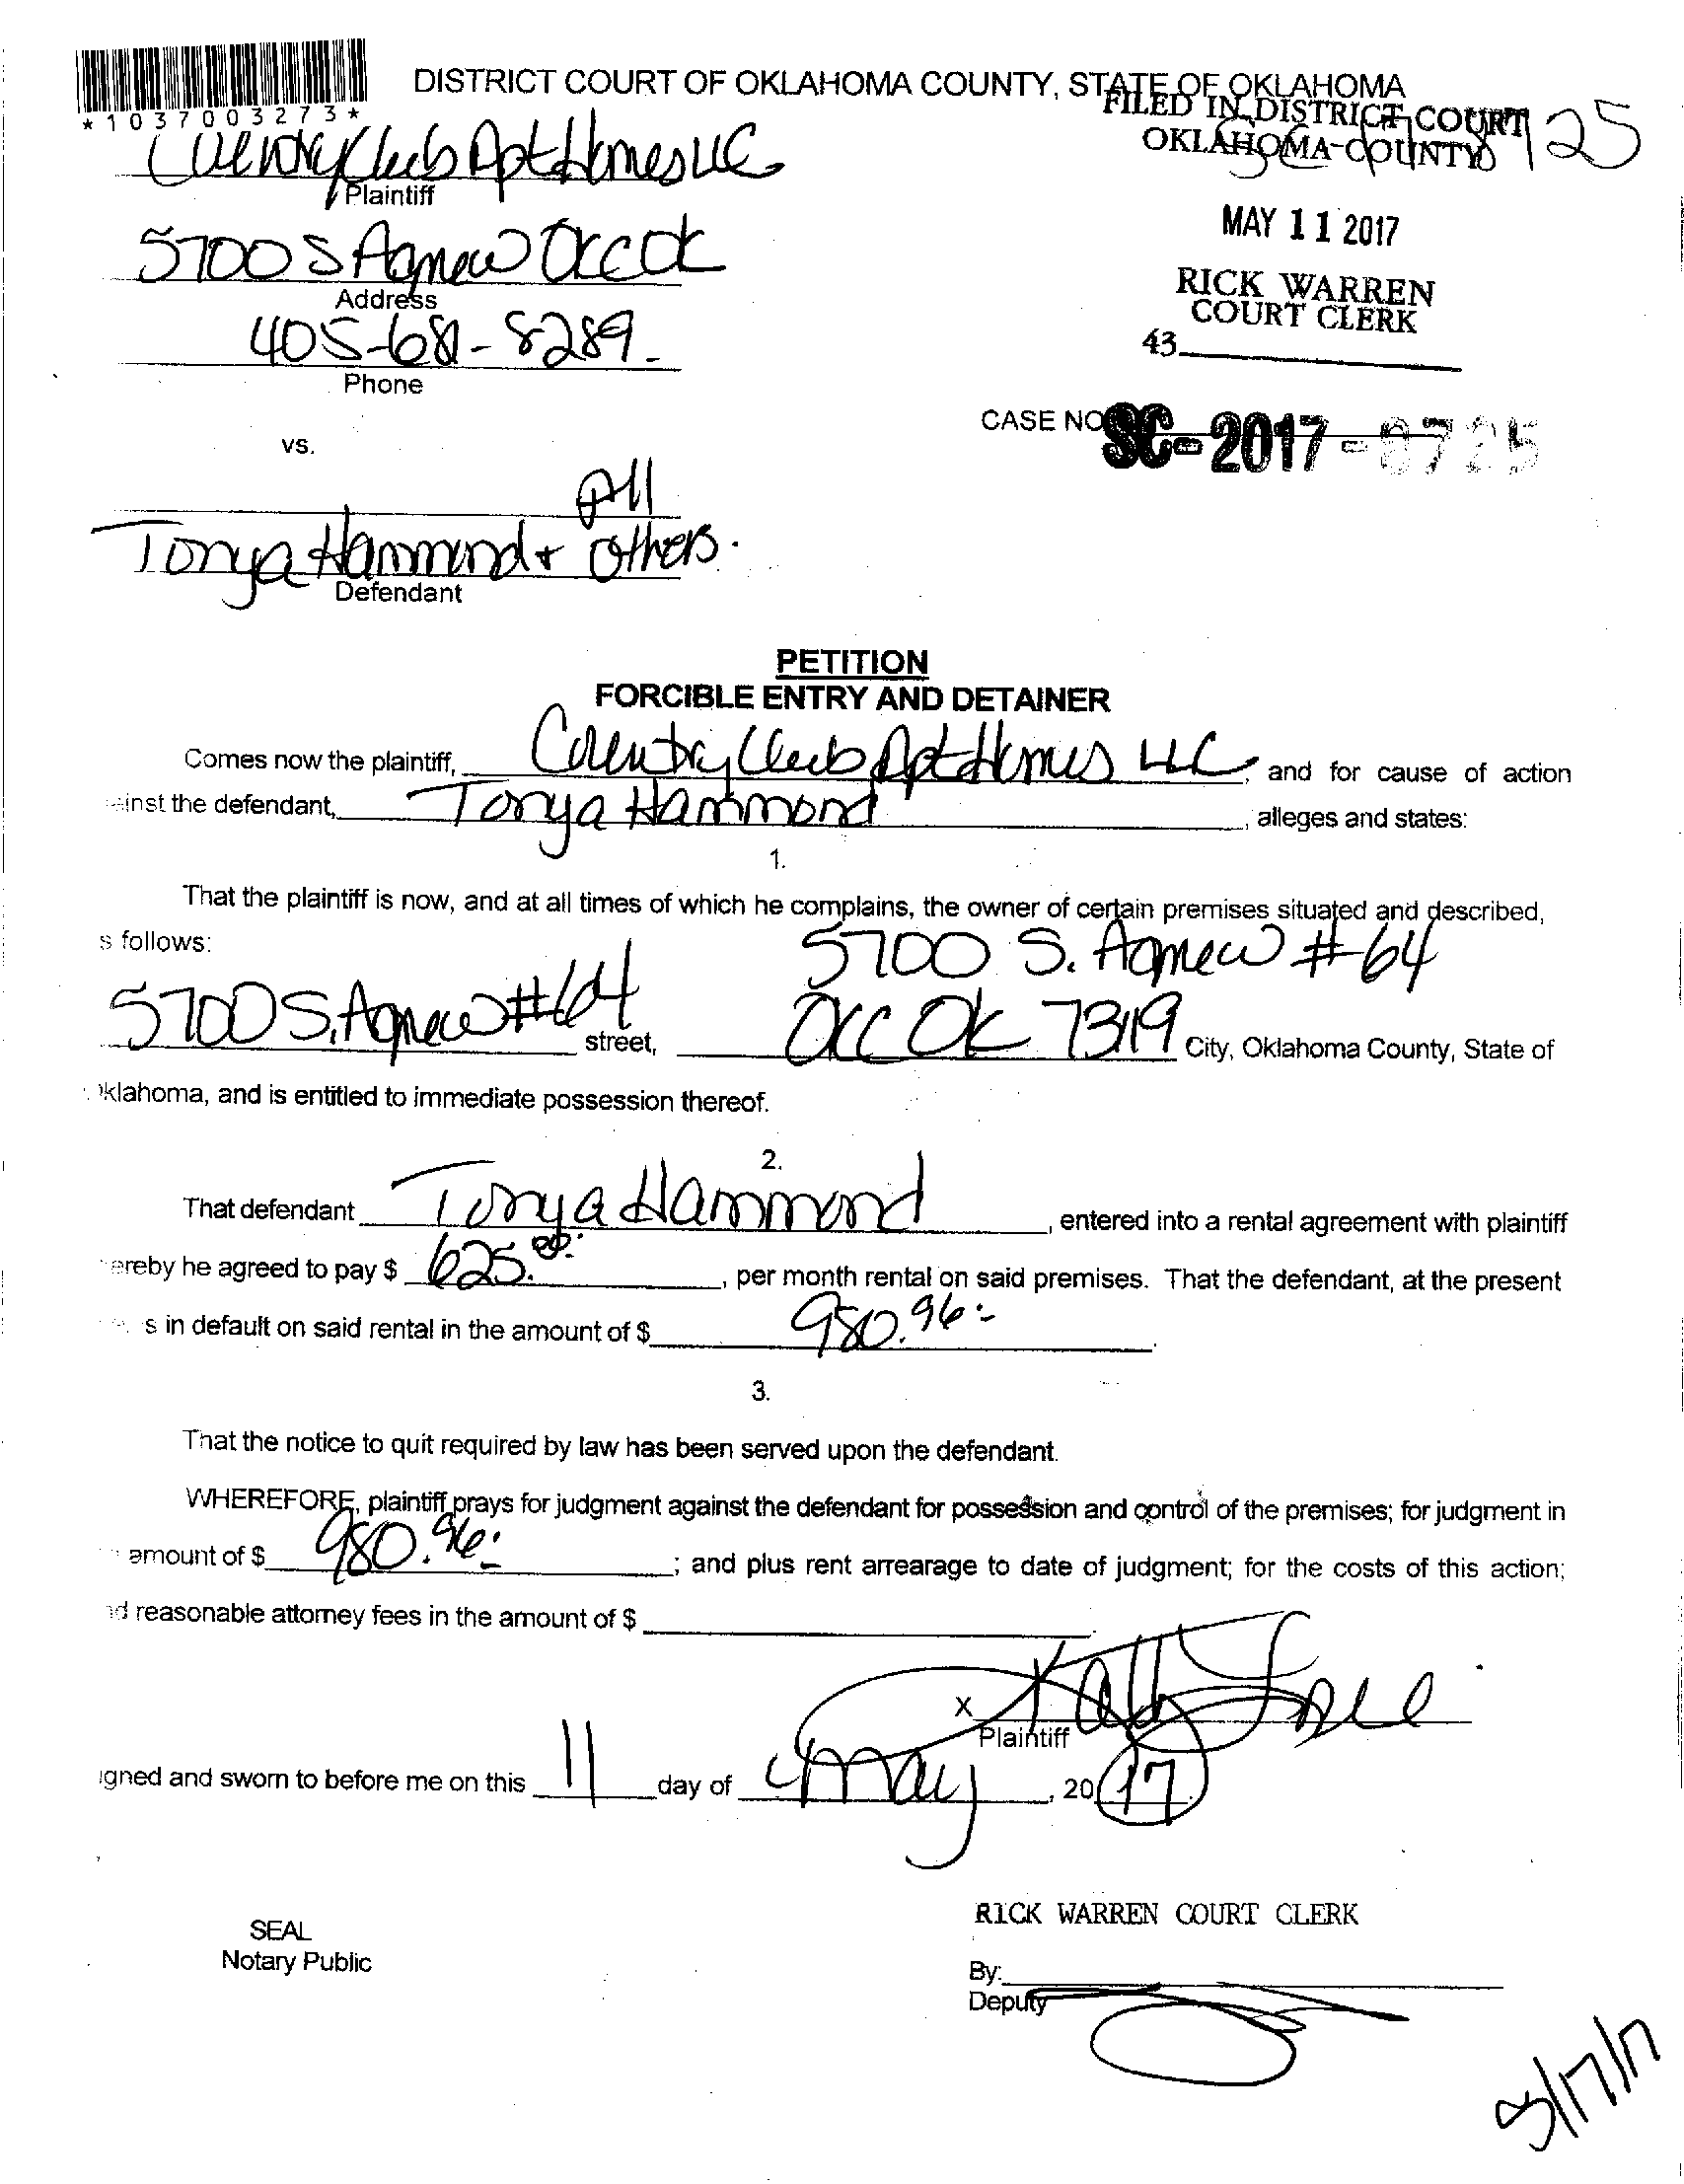 DISTRICT COURT OF OKLAHOMA COUNTY, STATE OF OKLAHOMA
*1037003273*
FILED IN DISTRICT COURT
OKLAHOMA COUNTY
Country Club Apt Homes LLC
Plaintiff
MAY 11 2017
5700 S Agnew OKC OK
Address
RICK WARREN
COURT CLERK
405-681-8289
43
Phone
CASE NO SC-2017-8725
vs.
All
Tonya Hammond + Others.
Defendant
PETITION
FORCIBLE ENTRY AND DETAINER
Comes now the plaintiff, Country Club Apt Homes LLC, and for cause of action
inst the defendant, Tonya Hammond, alleges and states:
1.
That the plaintiff is now, and at all times of which he complains, the owner of certain premises situated and described,
s follows:
5700 S. Agnew #64
5700 S. Agnew #64 street, OKC OK 73119 City, Oklahoma County, State of
klahoma, and is entitled to immediate possession thereof.
2.
That defendant Tonya Hammond, entered into a rental agreement with plaintiff
ereby he agreed to pay $ 625.00, per month rental on said premises. That the defendant, at the present
s in default on said rental in the amount of $ 980.96
3.
That the notice to quit required by law has been served upon the defendant.
WHEREFORE, plaintiff prays for judgment against the defendant for possession and control of the premises; for judgment in
amount of $ 980.96; and plus rent arrearage to date of judgment; for the costs of this action;
d reasonable attorney fees in the amount of $
X
Plaintiff
igned and sworn to before me on this 11 day of May, 2017
RICK WARREN COURT CLERK
SEAL
Notary Public
By:
Deputy
5/17/17